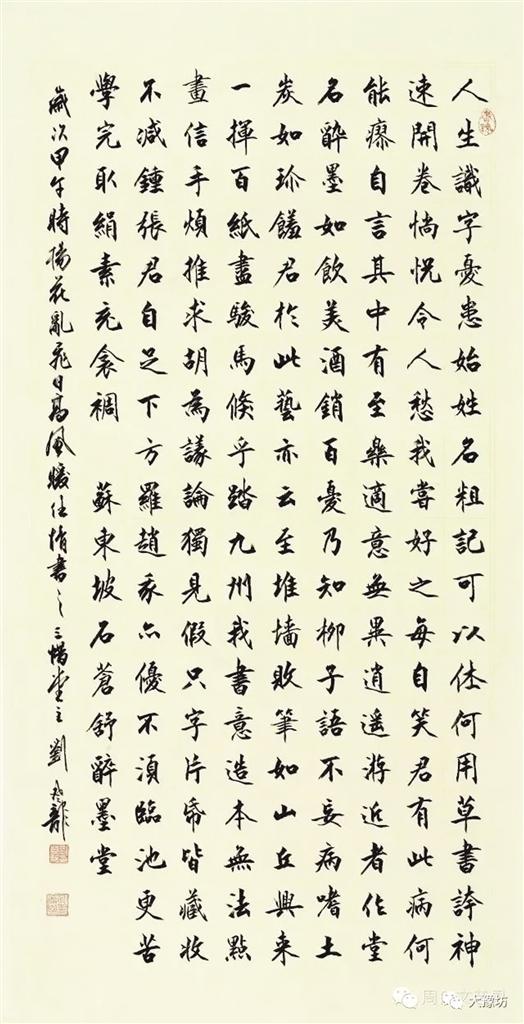 人生識字憂患始姓名粗記可以休何用草書誇神
速開卷惝怳令人愁我嘗好之每自笑君有此病何
能瘳自言其中有至樂適意無異逍遙游近者作堂
名醉墨如飲美酒銷百憂乃知柳子語不妄病嗜土
炭如珍饈君於此藝亦云至堆墻敗筆如山丘興來
一揮百紙盡駿馬倏乎踏九州我書意造本無法點
畫信手煩推求胡為議論獨見假只字片帋皆藏收
不減鍾張君自足下方羅趙我亦優不須臨池更苦
學完取絹素充衾裯 蘇東坡石蒼舒醉墨堂
歲次甲午時楊花亂飛日高風暖任情書之三惜堂主劉
大豫坊